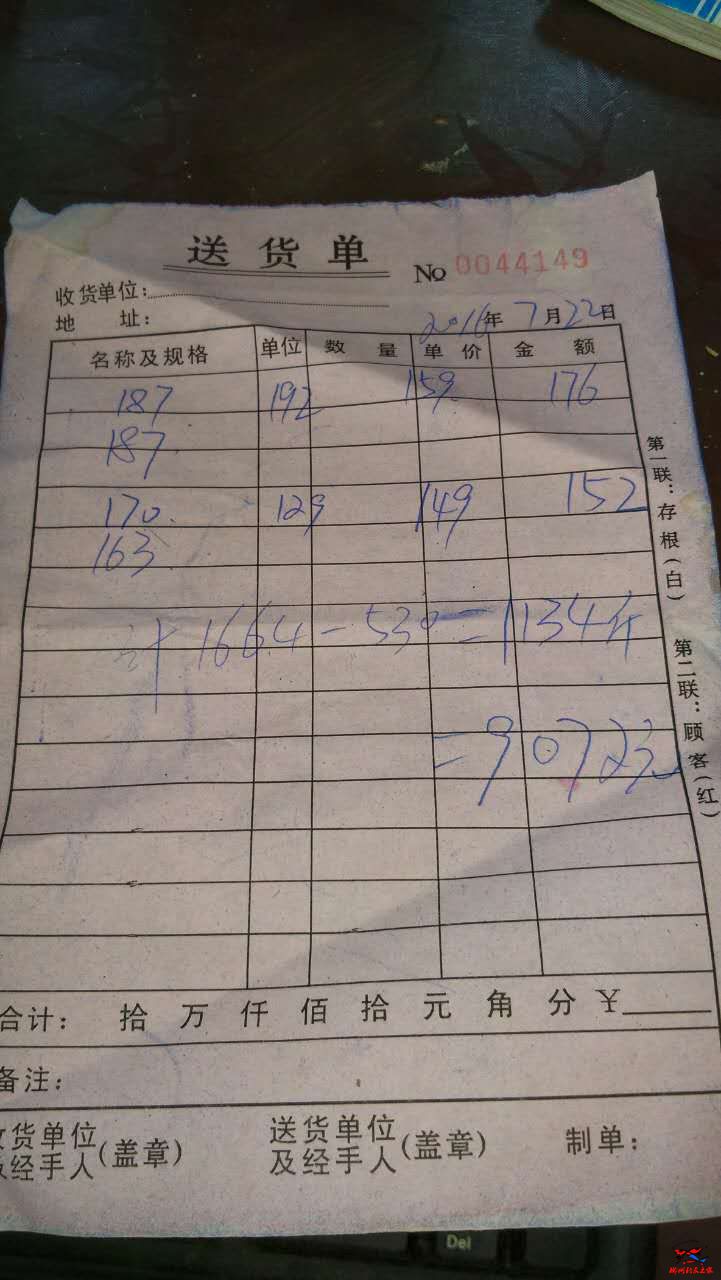 送货单
No 0044149
收货单位:
地 址:
2016年7月22日
名称及规格 单位 数量 单价 金额
187 192 159 176
187
170 129 149 152
163
计 1664-530=1134斤
=9072元
第一联:存根(白)
第二联:顾客(红)
合计: 拾 万 仟 佰 拾 元 角 分 ¥
备注:
收货单位及经手人(盖章)
送货单位及经手人(盖章)
制单:
Del